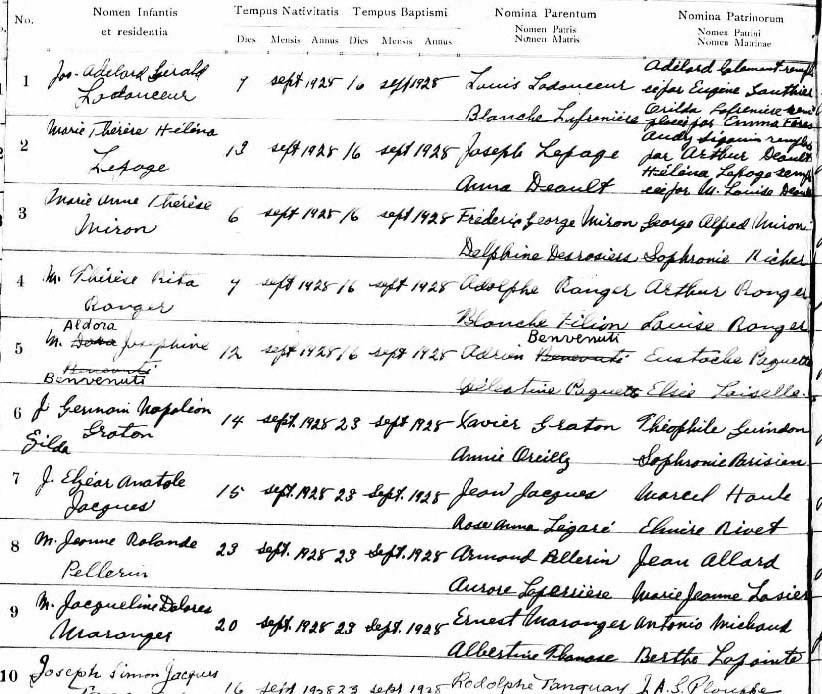 No. Nomen Infantis et residentia Tempus Nativitatis Tempus Baptismi Nomina Parentum Nomina Patrinorum
Dies Mensis Annus Dies Mensis Annus Nomen Patris Nomen Matris Nomen Patrini Nomen Matrinae
1 Jos. Adélard Gérald Ladouceur 7 sept 1928 16 sept 1928 Louis Ladouceur Adélard Clement
cé par Eugène Gauthier
Blanche Lafrenière Cerilda Lafrenière
placée par Emma
2 Marie Thérèse Héléna Lepage 13 sept 1928 16 sept 1928 Joseph Lepage
par Arthur Deault
Anna Deault Héléna Lepage
cée par M. Louise
3 Marie Anne Thérèse Miron 6 sept 1928 16 sept 1928 Fréderic George Miron George Alfred Miron
Delphine Desrosiers Sophronie Richer
4 M. Thérèse Rita Ranger 7 sept 1928 16 sept 1928 Adolphe Ranger Arthur Ranger
Blanche Filion Louise Ranger
Aldora Benvenuti
5 M. Dora Josephine 12 sept 1928 16 sept 1928 Adrien Benevuti Eustache Paquette
Benvenuti
Célestine Paquette Elsie Loiselle
6 J. Germain Napoléon Graton 14 sept. 1928 23 sept 1928 Xavier Graton Théophile Guindon
Gilda
Annie Oreilly Sophronie Parisien
7 J. Elzéar Anatole Jacques 15 sept. 1928 23 Sept. 1928 Jean Jacques Marcel Houle
Rose Anna Légaré Elmire Rivet
8 M. Jeanne Rolande Pellerin 23 sept. 1928 23 Sept. 1928 Armand Pellerin Jean Allard
Aurore Laperrière Marie Jeanne Lasier
9 M. Jacqueline Dolores Maranger 20 sept. 1928 23 Sept. 1928 Ernest Maranger Antonio Michaud
Albertine Lapointe
10 Joseph Simon Jacques 16 sept 1928 23 sept 1928 Rodolphe Tanguay J.A.S. Plouffe